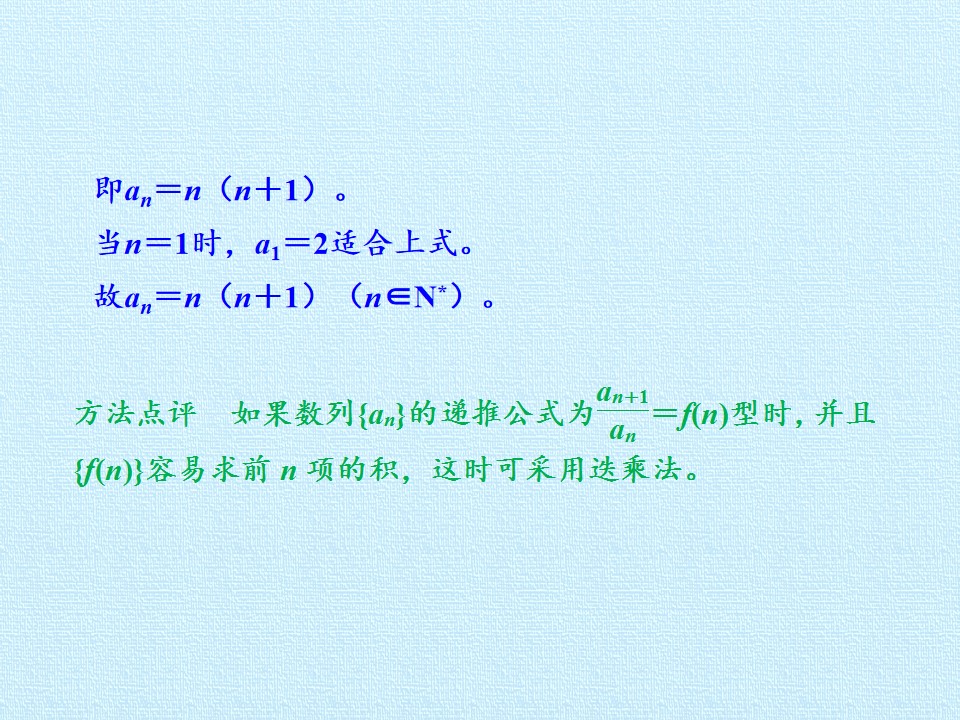 即aₙ＝n（n＋1）。
当n＝1时，a₁＝2适合上式。
故aₙ＝n（n＋1）（n∈N*）。
方法点评　如果数列{aₙ}的递推公式为aₙ₊₁/aₙ＝f(n)型时，并且
{f(n)}容易求前 n 项的积，这时可采用迭乘法。